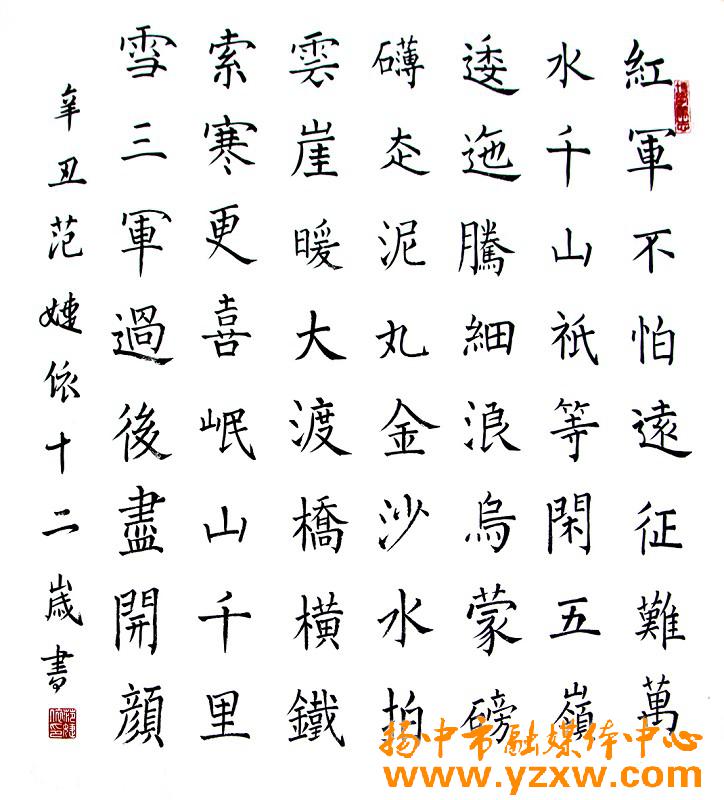 紅軍不怕遠征難萬
水千山祇等閑五嶺
逶迤騰細浪烏蒙磅
礴走泥丸金沙水拍
雲崖暖大渡橋橫鐵
索寒更喜岷山千里
雪三軍過後盡開顏
辛丑范婕依十二歲書
扬中市融媒体中心
www.yzxw.com